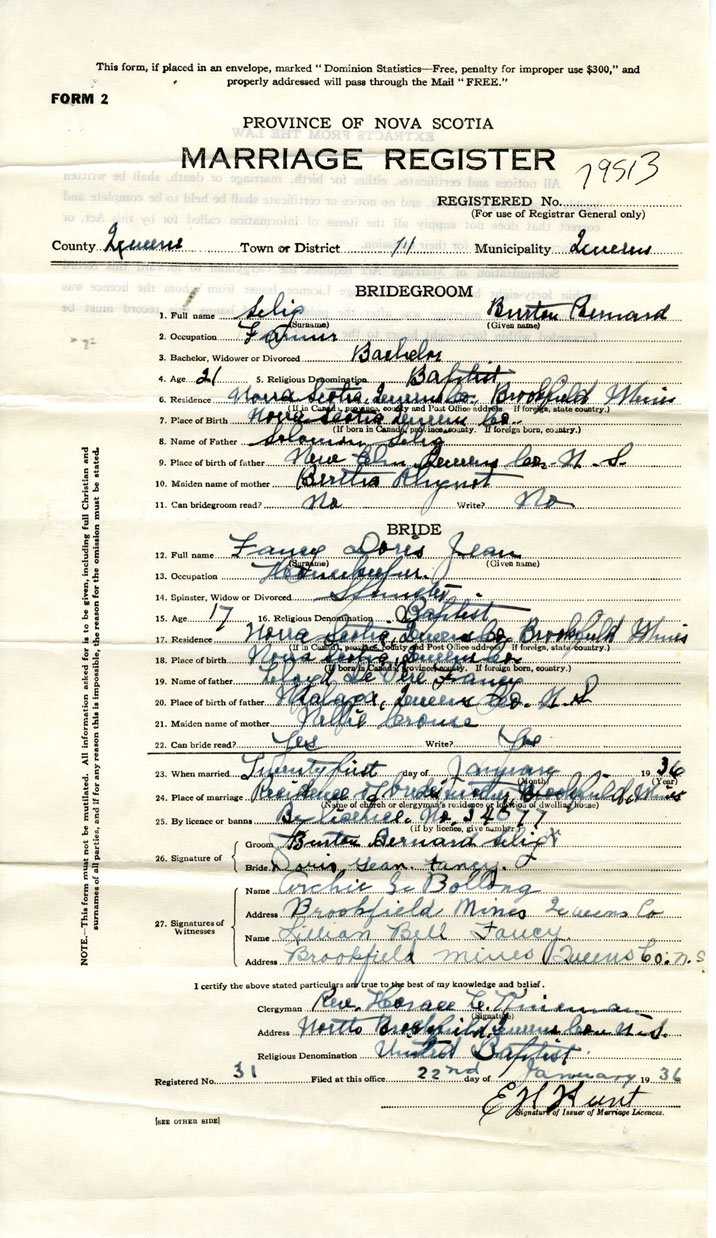 This form, if placed in an envelope, marked "Dominion Statistics—Free, penalty for improper use $300," and
properly addressed will pass through the Mail "FREE."
FORM 2
PROVINCE OF NOVA SCOTIA
MARRIAGE REGISTER
79513
REGISTERED No.
(For use of Registrar General only)
County Queens Town or District 11 Municipality Queens
BRIDEGROOM
1. Full name Selig Burton Bernard
(Surname) (Given name)
2. Occupation Farmer
3. Bachelor, Widower or Divorced Bachelor
4. Age 21 5. Religious Denomination Baptist
6. Residence Nova Scotia, Queens Co. Brookfield Mines
(If in Canada, province, county and Post Office address. If foreign, state country.)
7. Place of Birth Nova Scotia, Queens Co.
(If born in Canada, province, county. If foreign born, country.)
8. Name of Father Solomon Selig
9. Place of birth of father New Elm Queens Co. N. S.
10. Maiden name of mother Bertha
11. Can bridegroom read? No Write? No
BRIDE
12. Full name Fancy Doris Jean
(Surname) (Given name)
13. Occupation Housekeeper.
14. Spinster, Widow or Divorced Spinster
15. Age 17 16. Religious Denomination Baptist
17. Residence Nova Scotia, Queens Co. Brookfield Mines
(If in Canada, province, county and Post Office address. If foreign, state country.)
18. Place of birth Nova Scotia, Queens Co
(If born in Canada, province, county. If foreign born, country.)
19. Name of father Lloyd De Vere Fancy
20. Place of birth of father Malaga, Queens Co. N. S
21. Maiden name of mother Nellie Crouse
22. Can bride read? Yes Write? Yes
23. When married Twenty first day of January 1936
(Month) (Year)
24. Place of marriage Residence of Brookfield Mines
(Name of church or clergyman's residence or location of dwelling house)
25. By licence or banns By licence. No. 34677
(If by licence, give number.)
26. Signature of
Groom Burton Bernard Selig x
Bride Doris Jean Fancy.
27. Signatures of Witnesses
Name Archie Bollong
Address Brookfield Mines Queens Co
Name Lillian Bell Fancy
Address Brookfield mines Queens Co. N.S
NOTE.—This form must not be mutilated. All information asked for is to be given, including full Christian and
surnames of all parties, and if for any reason this is impossible, the reason for the omission must be stated.
I certify the above stated particulars are true to the best of my knowledge and belief.
Clergyman Rev. Horace E.
(Signature)
Address North Brookfield, Queens Co. N. S.
Religious Denomination United Baptist
Registered No. 31 Filed at this office 22nd day of January 1936
E H Hunt
Signature of Issuer of Marriage Licences.
[SEE OTHER SIDE]